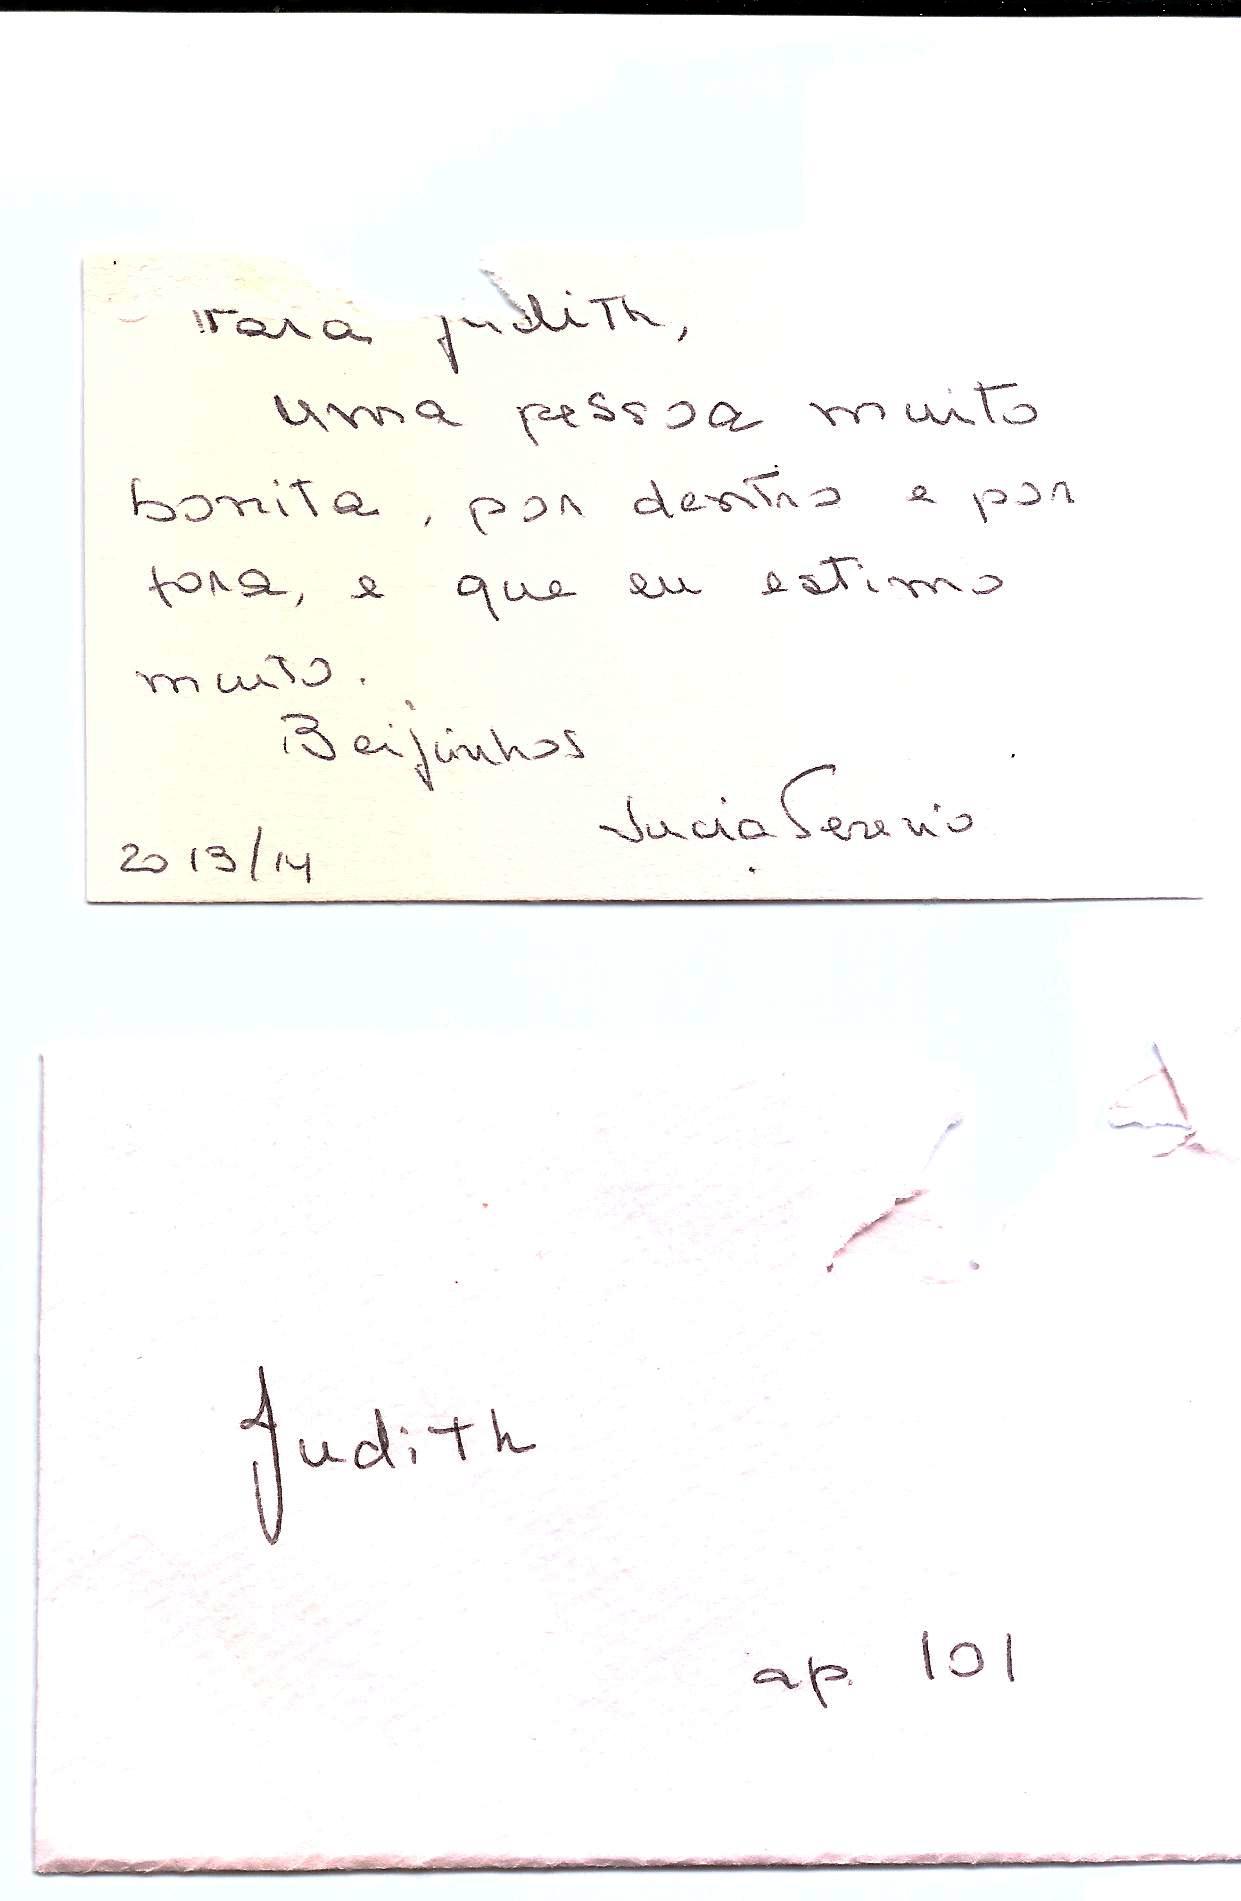 Para Judith,
uma pessoa muito
bonita, por dentro e por
fora, e que eu estimo
muito.
Beijinhos
Lucia
2013/14
Judith
ap. 101